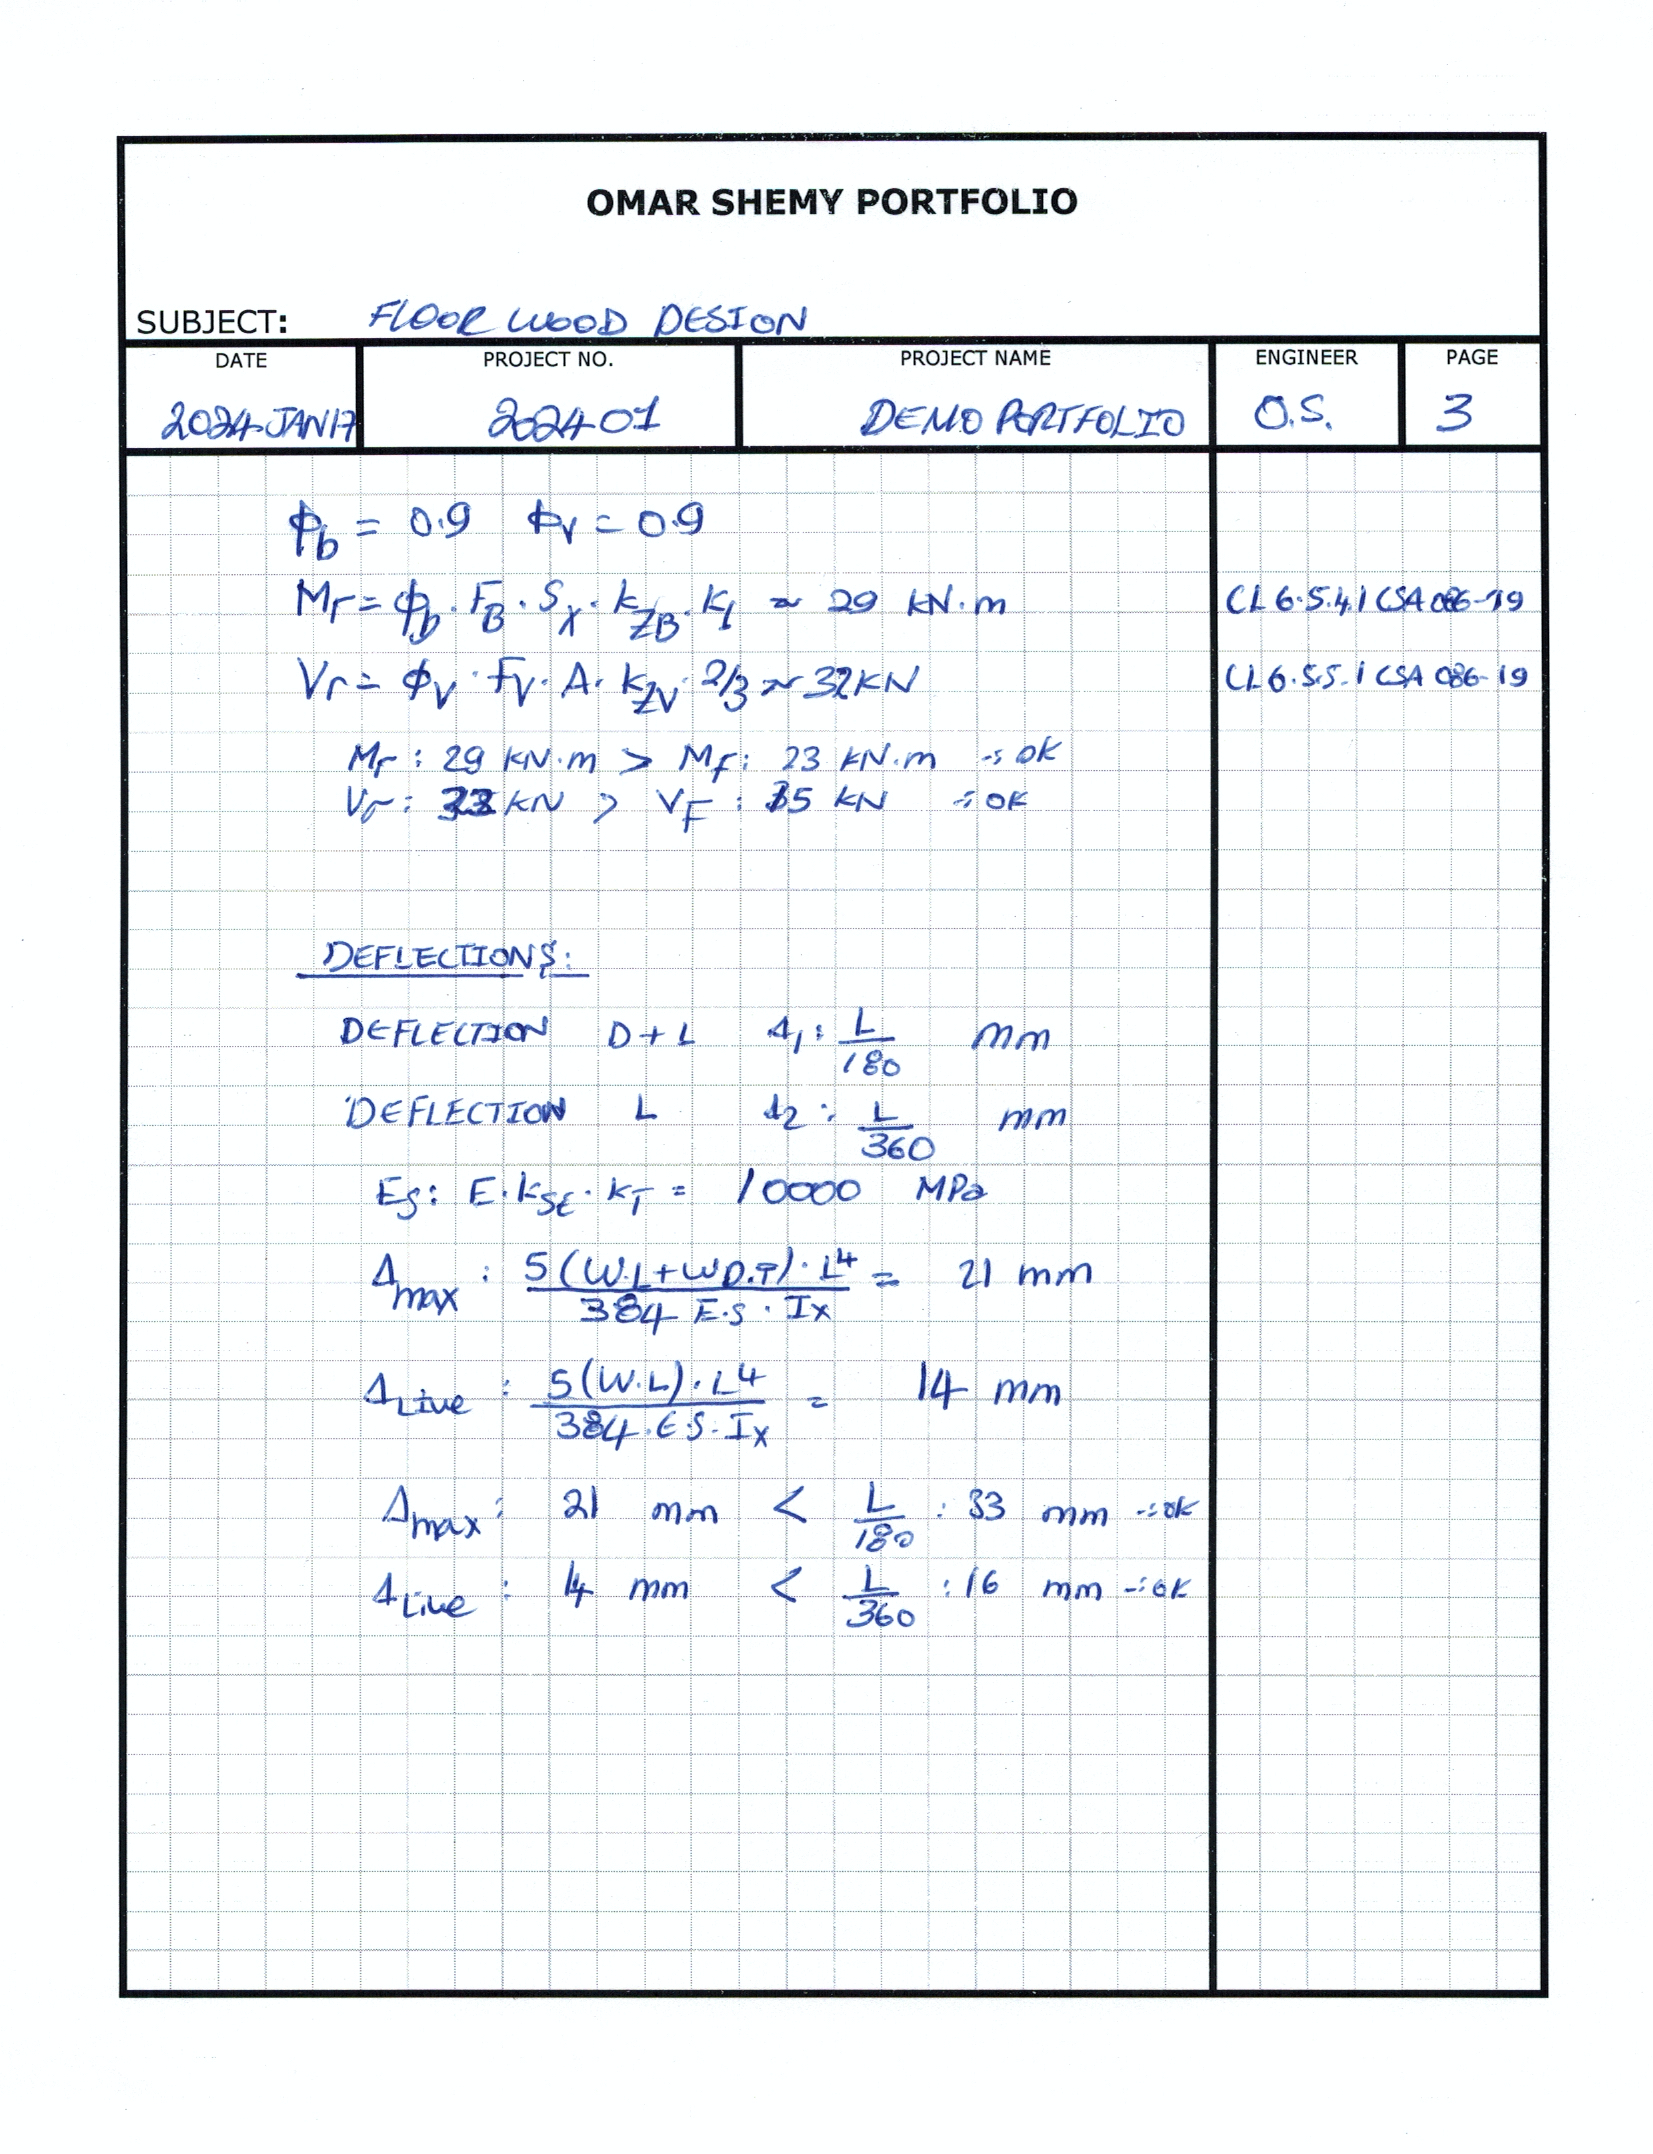 OMAR SHEMY PORTFOLIO
SUBJECT: FLOOR WOOD DESIGN
DATE PROJECT NO. PROJECT NAME ENGINEER PAGE
2024-JAN17 202401 DEMO PORTFOLIO O.S. 3
ϕb = 0.9 ϕv = 0.9
Mr = ϕb · FB · Sx · KZB · KL ≈ 29 kN·m CL 6.5.4.1 CSA 086-19
Vr = ϕv · Fv · A · KZV · 2/3 ≈ 32 KN CL 6.5.5.1 CSA 086-19
Mr : 29 KN·m > Mf : 23 KN·m ∴ OK
Vr : KN > VF : 15 KN ∴ OK
DEFLECTIONS:
DEFLECTION D + L Δ1 : L/180 mm
DEFLECTION L Δ2 : L/360 mm
Es : E · KSE · KT = 10000 MPa
Δmax : 5(W.L+WD.T) · L4 / 384 E.S · Ix = 21 mm
ΔLive : 5(W.L) · L4 / 384 · E.S · Ix = 14 mm
Δmax : 21 mm < L/180 : 33 mm ∴ OK
ΔLive : 14 mm < L/360 : 16 mm ∴ OK